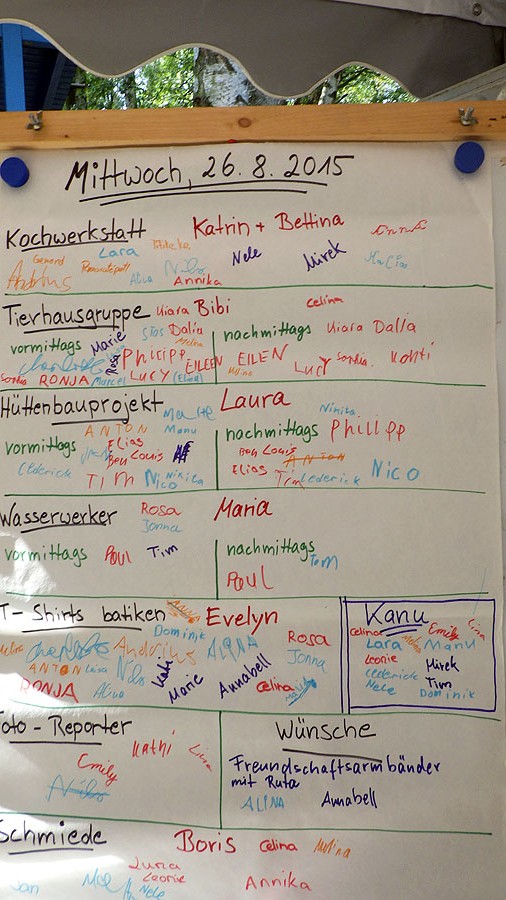 Mittwoch, 26.8.2015
Kochwerkstatt Katrin + Bettina
Lara Nele Mirek
Andrius Alva Nils Annika
Tierhausgruppe Uiara Bibi Celina
vormittags Marie Dalia nachmittags Uiara Dalia
Charlotte Rosa Philipp EILEEN EILEN LUCY Sontka Kohti
RONJA Marcel LUCY
Hüttenbauprojekt Malte Laura Nikita
vormittags ANTON Manu nachmittags Philipp
Elias Ben Louis Ben Louis ANTON
Cederick Jan Elias Nico
Tim Nico Nikita Tim Cederick
Wasserwerker Rosa Maria
Jonna
vormittags Paul Tim nachmittags Tom
Paul
T-Shirts batiken Evelyn
Dominik
Charlotte Andrius ALINA Rosa
ANTON Lisa Nils Kati Jonna
RONJA Alva Marie Annabell Celina
Kanu
Celina Emily Lisa
Lara Manu
Leonie Mirek
Cederick Tim
Nele Dominik
Foto-Reporter
Kathi Lisa
Emily
Nils
Wünsche
Freundschaftsarmbänder
mit Ruta
ALINA Annabell
Schmiede Boris Celina Melina
Luna
Leonie
Jan Nele Annika